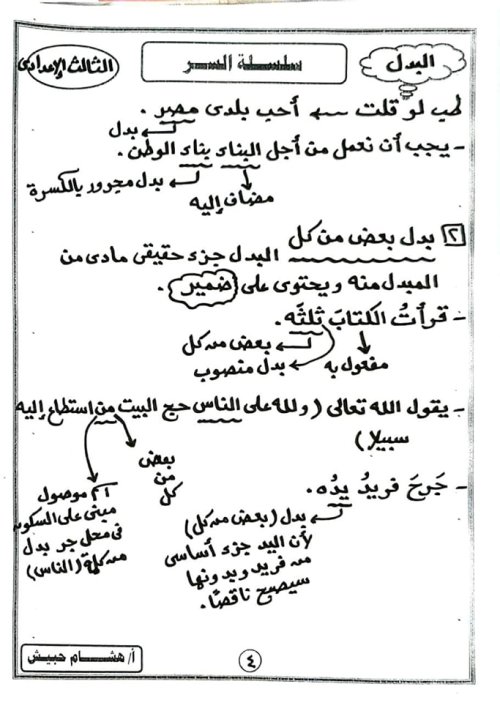 البدل
سلسلة السر
الثالث الإعدادى
طب لو قلت ← أحب بلدى مصر.
بدل
- يجب أن نعمل من أجل البناء بناء الوطن.
بدل مجرور بالكسرة
مضاف إليه
٢ بدل بعض من كل
البدل جزء حقيقى مادى من
المبدل منه ويحتوى على ضمير.
- قرأتُ الكتابَ ثلثَه.
بعض من كل
مفعول به
بدل منصوب
- يقول الله تعالى (ولله على الناس حج البيت من استطاع إليه
سبيلا)
بعض
من
كل
اسم موصول
مبنى على السكون
فى محل جر بدل
من كلمة (الناس)
- جَرحَ فريدُ يدُه.
بدل (بعض من كل)
لأن اليد جزء أساسى
من فريد وبدونها
سيصبح ناقصًا.
أ/ هشام حبيش
٤